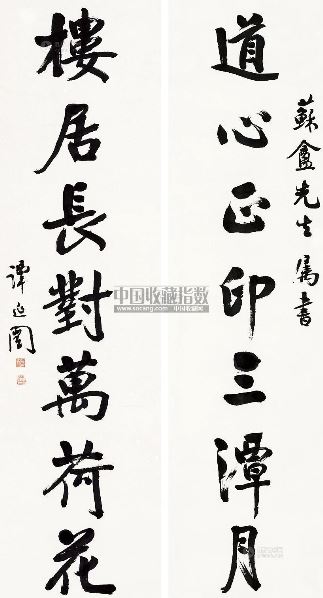 蘇盦先生属書
道心正印三潭月
樓居長對萬荷花
譚延闓
中国收藏指数
www.socang.com